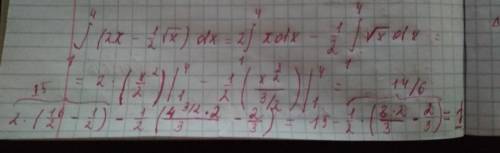 ∫₁⁴ (2x − 1/2 √x) dx = 2 ∫₁⁴ x dx − 1/2 ∫₁⁴ √x dx =
= 2 · (x²/2) |₁⁴ − 1/2 (x^2/(3/2)) |₁⁴ =
15 14/6
2 · (− 1/2) − 1/2 (4^(3/2) · 2/3 − 2/3) = 15 − 1/2 · (− 2/3) = 1